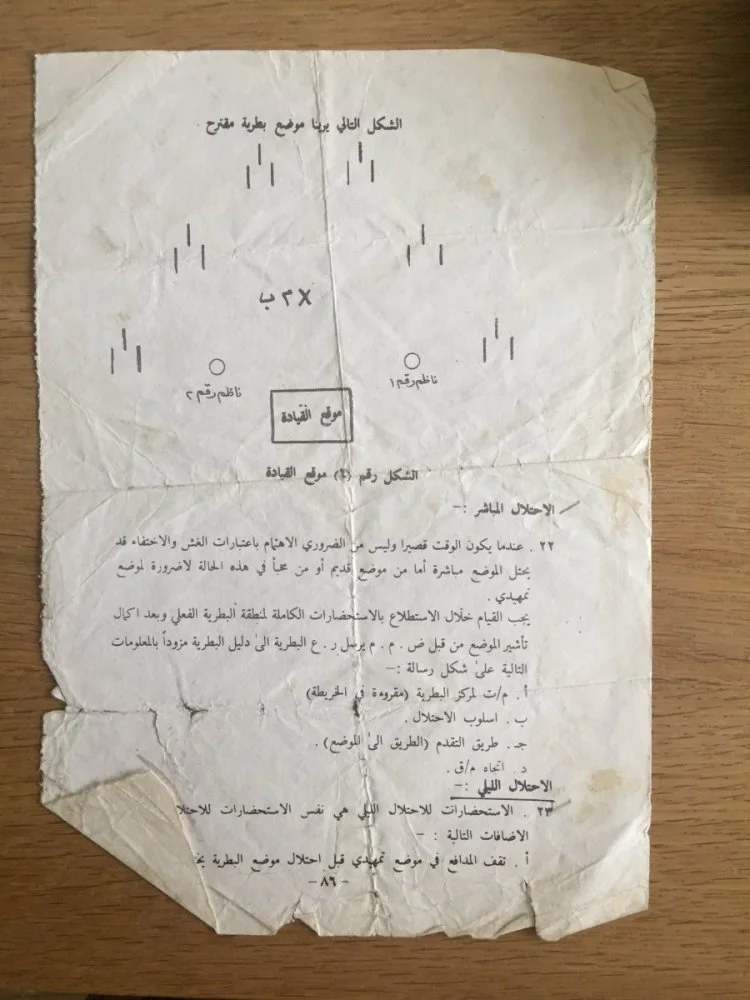 الشكل التالي يرينا موضع بطرية مقترح
X م ب
ناظم رقم ١
ناظم رقم ٢
موقع القيادة
الشكل رقم (٤) موقع القيادة
الاحتلال المباشر :-
٢٢ . عندما يكون الوقت قصيرا وليس من الضروري الاهتمام باعتبارات الغش والاختفاء قد
يحتل الموضع مباشرة أما من موضع قديم أو من مخبأ في هذه الحالة لاضرورة لموضع
تمهيدي .
يجب القيام خلال الاستطلاع بالاستحضارات الكاملة لمنطقة البطرية الفعلي وبعد اكمال
تأشير الموضع من قبل ض . م . م يرسل ر . ع البطرية الى دليل البطرية مزوداً بالمعلومات
التالية على شكل رسالة :-
أ . م/ت لمركز البطرية (مقروءة في الخريطة)
ب . اسلوب الاحتلال .
جـ . طريق التقدم (الطريق الى الموضع) .
د . اتجاه م/ق .
الاحتلال الليلي :-
٢٣ . الاستحضارات للاحتلال الليلي هي نفس الاستحضارات
الاضافات التالية : -
أ . تقف المدافع في موضع تمهيدي قبل احتلال موضع البطرية
- ٨٦ -